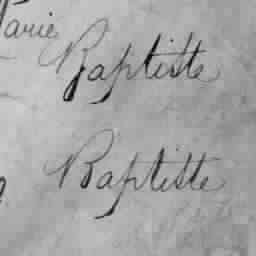 Marie
Baptiste
Baptiste